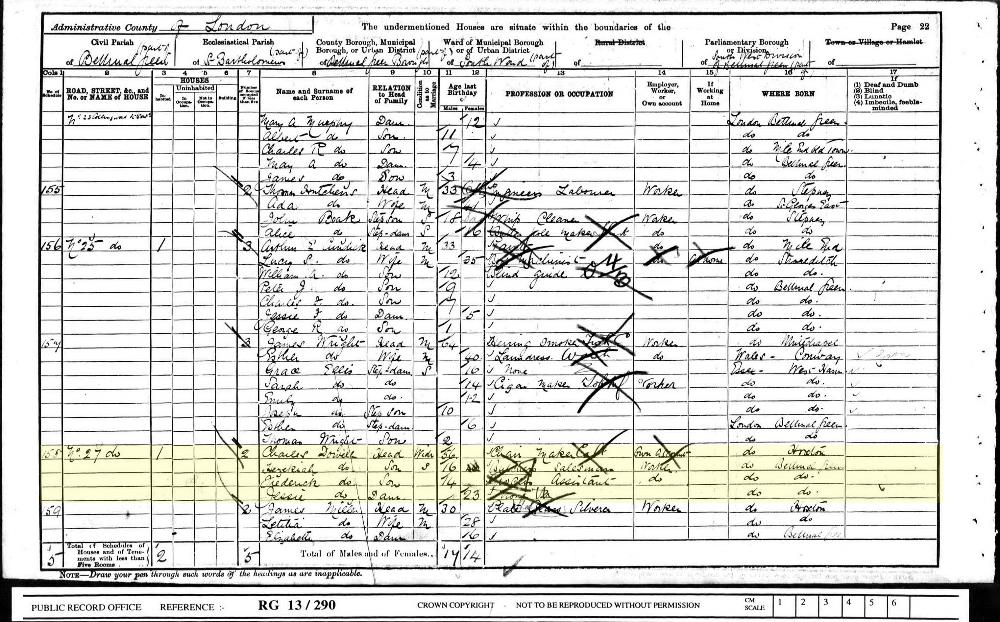 Administrative County of London
The undermentioned Houses are situate within the boundaries of the
Page 22
Civil Parish of Bethnal Green (part of)
Ecclesiastical Parish of St Bartholomews (part of)
County Borough, Municipal Borough, or Urban District of Bethnal Green Borough
Ward of Municipal Borough or of Urban District of South Ward (part of)
Rural District of
Parliamentary Borough or Division of
Town or Village or Hamlet of
Cols. 1 2 3 4 5 6 7 8 9 10 11 12 13 14 15 16 17
No. of Schedule
ROAD, STREET, &c., and No. or NAME of HOUSE
HOUSES
Inhabited
Uninhabited
In Occupation
Not in Occupation
Building
Name and Surname of each Person
RELATION to Head of Family
Condition as to Marriage
Age last Birthday of
Males
Females
PROFESSION OR OCCUPATION
Employer, Worker, or Own account
If Working at Home
WHERE BORN
If
(1) Deaf and Dumb
(2) Blind
(3) Lunatic
(4) Imbecile, feeble-minded
Mary A Murphy Daur 12 London Bethnal Green
Albert do Son 11 do do
Charles R do Son 7 do Mile End Old Town
May A do Daur 4 do Bethnal Green
James do Son 3 do do
155 2 Thomas Head M 33 Engineers Labourer Worker do Stepney
Ada do Wife M do St Georges East
John Step Son S 18 Cleaner Worker do Stepney
Alice do Step-daur S 16 maker do do do
156 No 25 do 1 3 Arthur Head M 33 do do Mile End
Lucy do Wife M 35 Machinist At home do
William A. do Son 12 do do
Peter J. do Son 9 do Bethnal Green
Charles F do Son 7 do do
Jessie F do Daur 5 do do
George R do Son 1 do do
157 3 James Wright Head M 64 Herring Smoker Worker do Whitechapel
Esther do Wife M 40 Laundress do Wales - Conway
Grace Ellis Step-daur S 16 None Essex - West Ham
Sarah do do 14 Cigar maker Worker do do
Emily do do 12 do do
Joseph do Step Son 10 do do
Esther do Step-daur 6 London Bethnal Green
Thomas Wright Son 2 do do
158 No 27 do 1 2 Charles Head Widr 56 Chair Maker Own Account do Hoxton
Hezekiah do Son S 16 Salesman Worker do Bethnal Green
Frederick do Son 14 Assistant do do do
Jessie do Daur 23 do do
159 2 James Miller Head M 30 Worker do Hoxton
Letitia do Wife M 28 do do
Elizabeth do Daur 6 do Bethnal Green
5 Total of Schedules of Houses and of Tenements with less than Five Rooms 2 5 Total of Males and of Females.. 17 14
NOTE—Draw your pen through such words of the headings as are inapplicable.
PUBLIC RECORD OFFICE REFERENCE :- RG 13 / 290 CROWN COPYRIGHT - NOT TO BE REPRODUCED WITHOUT PERMISSION CM SCALE 1 2 3 4 5 6